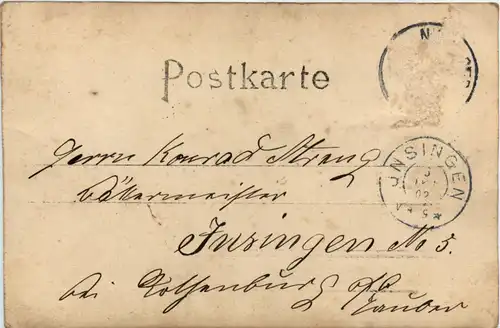 Postkarte
JNSINGEN
Herrn Konrad Strang
Bäckermeister
Insingen No 5.
bei Rothenburg o/b
Tauber